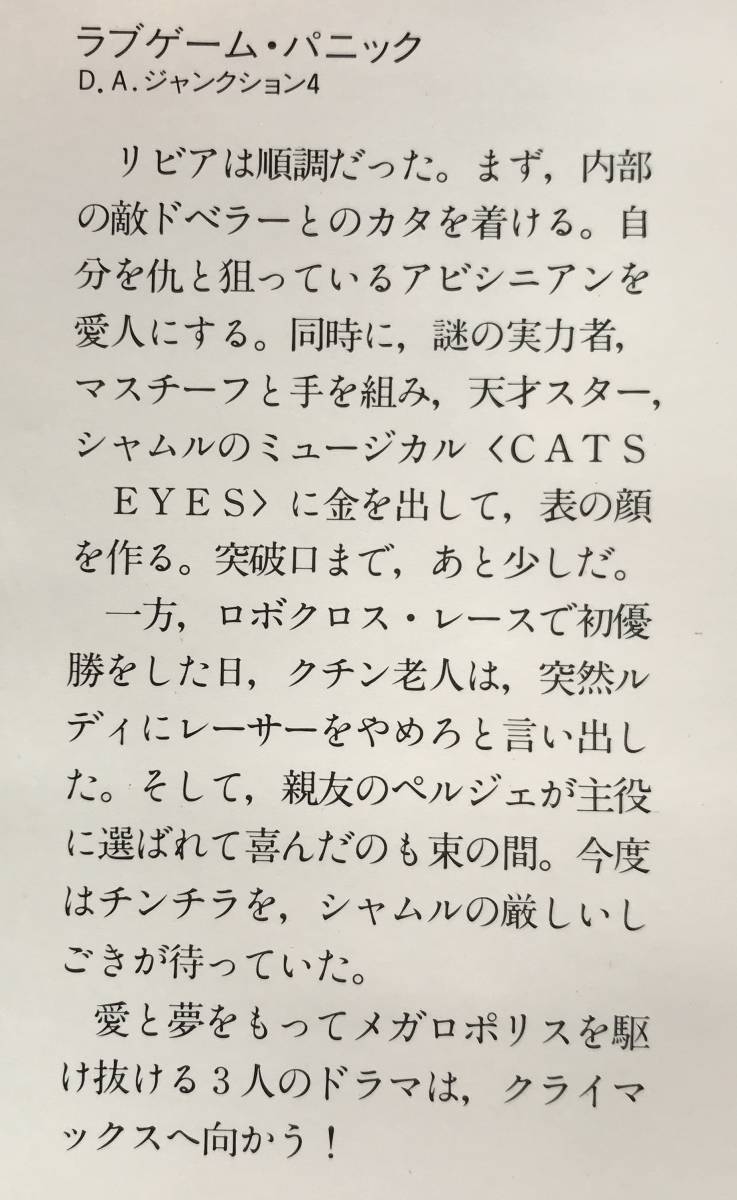 ラブゲーム・パニック
D.A.ジャンクション4
リビアは順調だった。まず，内部
の敵ドベラーとのカタを着ける。自
分を仇と狙っているアビシニアンを
愛人にする。同時に，謎の実力者，
マスチーフと手を組み，天才スター，
シャムルのミュージカル〈CATS
EYES〉に金を出して，表の顔
を作る。突破口まで，あと少しだ。
一方，ロボクロス・レースで初優
勝をした日，クチン老人は，突然ル
ディにレーサーをやめろと言い出し
た。そして，親友のペルジェが主役
に選ばれて喜んだのも束の間。今度
はチンチラを，シャムルの厳しいし
ごきが待っていた。
愛と夢をもってメガロポリスを駆
け抜ける3人のドラマは，クライマ
ックスへ向かう！